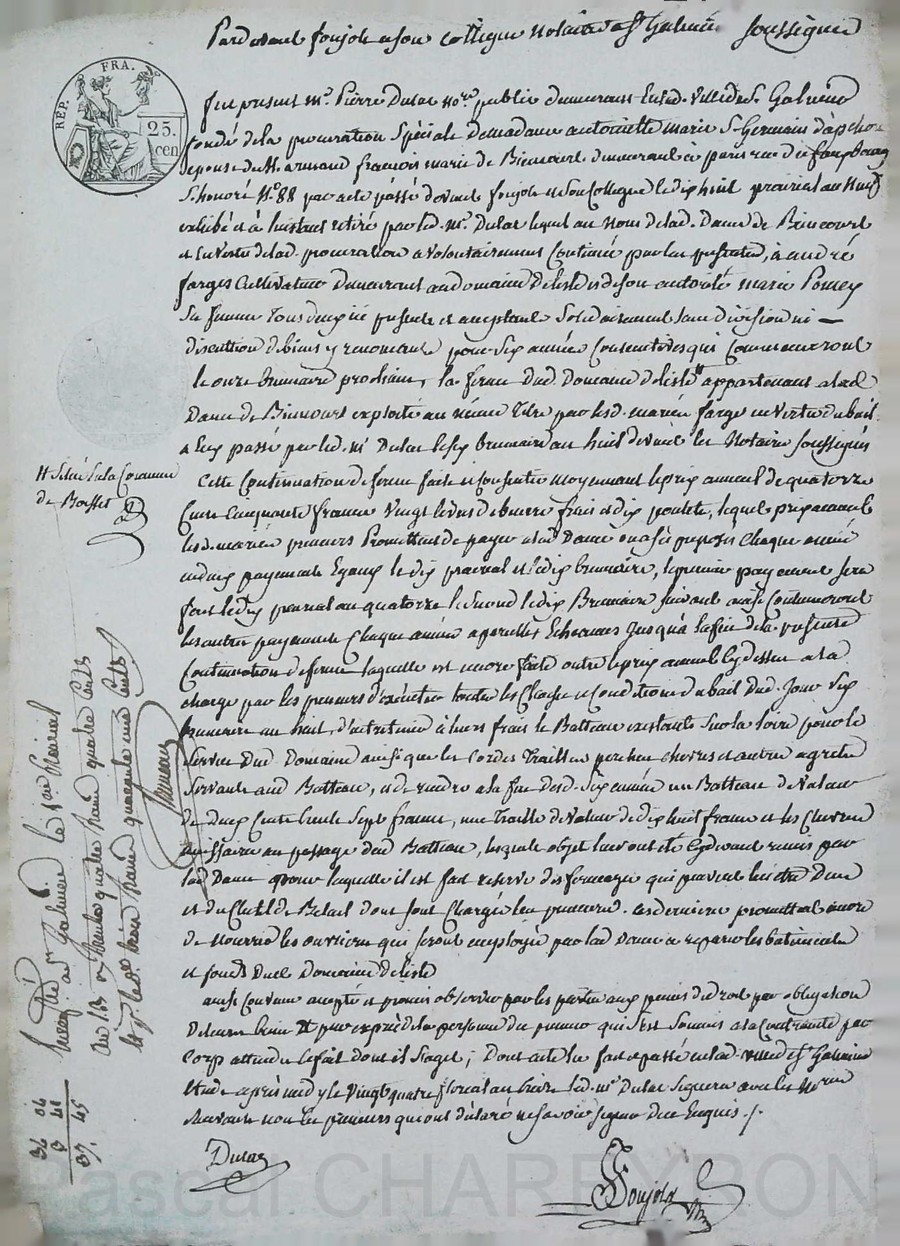 Pardevant soujols et son collègue notaires a St Galmier soussignés
REP. FRA.
25.
cen
fut present Mr. Pierre Dulac no.re public demeurant en lad. ville de St Galmier
fondé de la procuration spéciale de madame antoinette marie St Germain d'apchon
epouse de M. armand francois marie de Biencourt demeurant à paris rue du fauxbourg
St honoré No. 88 par acte passé devant soujols et son collegue le dix huit prairial an neuf
exhibé et à linstant retiré par led. Mr. Dulac lequel au nom de lad. Dame de Biencourt
et en vertu de lad. procuration a volontairement continué par les presentes, à andré
farges cultivateur demeurant au domaine de lisle et de son autorité marie Pomey
sa femme tous deux icy presents et acceptants solidairement sans division ni
discution de biens y renoncants pour six années consecutives qui commenceront
le onze brumaire prochain, la ferme dud. Domaine de lisle # appartenant a lad.
Dame de Biencourt exploité au même titre par lesd. mariés farge en vertu du bail
a eux passé par led. Mr Dulac le six brumaire an huit devant les Notaires soussignés
# Situé en la Commune
de Boisset
Cette Continuation de ferme faite et consentie moyennant le prix annuel de quatorze
Cents cinquante francs vingt livres de beurre frais et dix poulets, lequel prix annuel
lesd. mariés preneurs Promettent de payer a lad. Dame ou a ses preposés chaque année
en deux payements Egaux le dix prairial et le dix brumaire, le premier payement sera
fait le dix prairial an quatorze le second le dix Brumaire suivant ainsi continueront
les autres payements chaque année a pareilles Echeances jusqu'à la fin de la presente
Continuation de ferme laquelle est encore faite outre le prix annuel cy dessus a la
charge par les preneurs d'executer toutes les Clauses et Conditions du bail dud. Jour six
brumaire an huit, d'entretenir à leurs frais le Batteau existant sur la loire pour le
service dud Domaine ainsi que les cordes traille perches chevres et autres agrets
servants aud Batteau, et de rendre a la fin desd. six années un Batteau de valeur
de deux Cents trente sept francs, une traille de valeur de dix huit francs et les chevres
necessaires au passage dud Batteau, lesquels objets leur ont été cy devant remis par
lad Dame pour laquelle il est fait reserve des fromages qui peuvent lui etre Dus
et du Cheptel de Betail dont sont chargés les preneurs. ces derniers promettent encore
de nourrir les ouvriers qui seront employés par lad Dame a reparer les batiments
et fonds dud Domaine de lisle
ainsi Convenu accepté et promis observer par les parties aux peines de droit par obligation
de leurs biens et par exprès de la personne du preneur qui s'est soumis a la Contrainte par
corps attendu le fait dont il s'agit; Dont acte lu fait et passé en lad. ville de St Galmier
Etude après midy le vingt quatre floreal an treize led. Mr Dulac signera avec les Notaires
Suivants non les preneurs qui ont déclaré ne savoir signer de ce Enquis.
Dulac
Soujols
Enregistré a St Galmier le 1er Prairial
an 13
36 04
45
37.
Pascal CHAREYRON